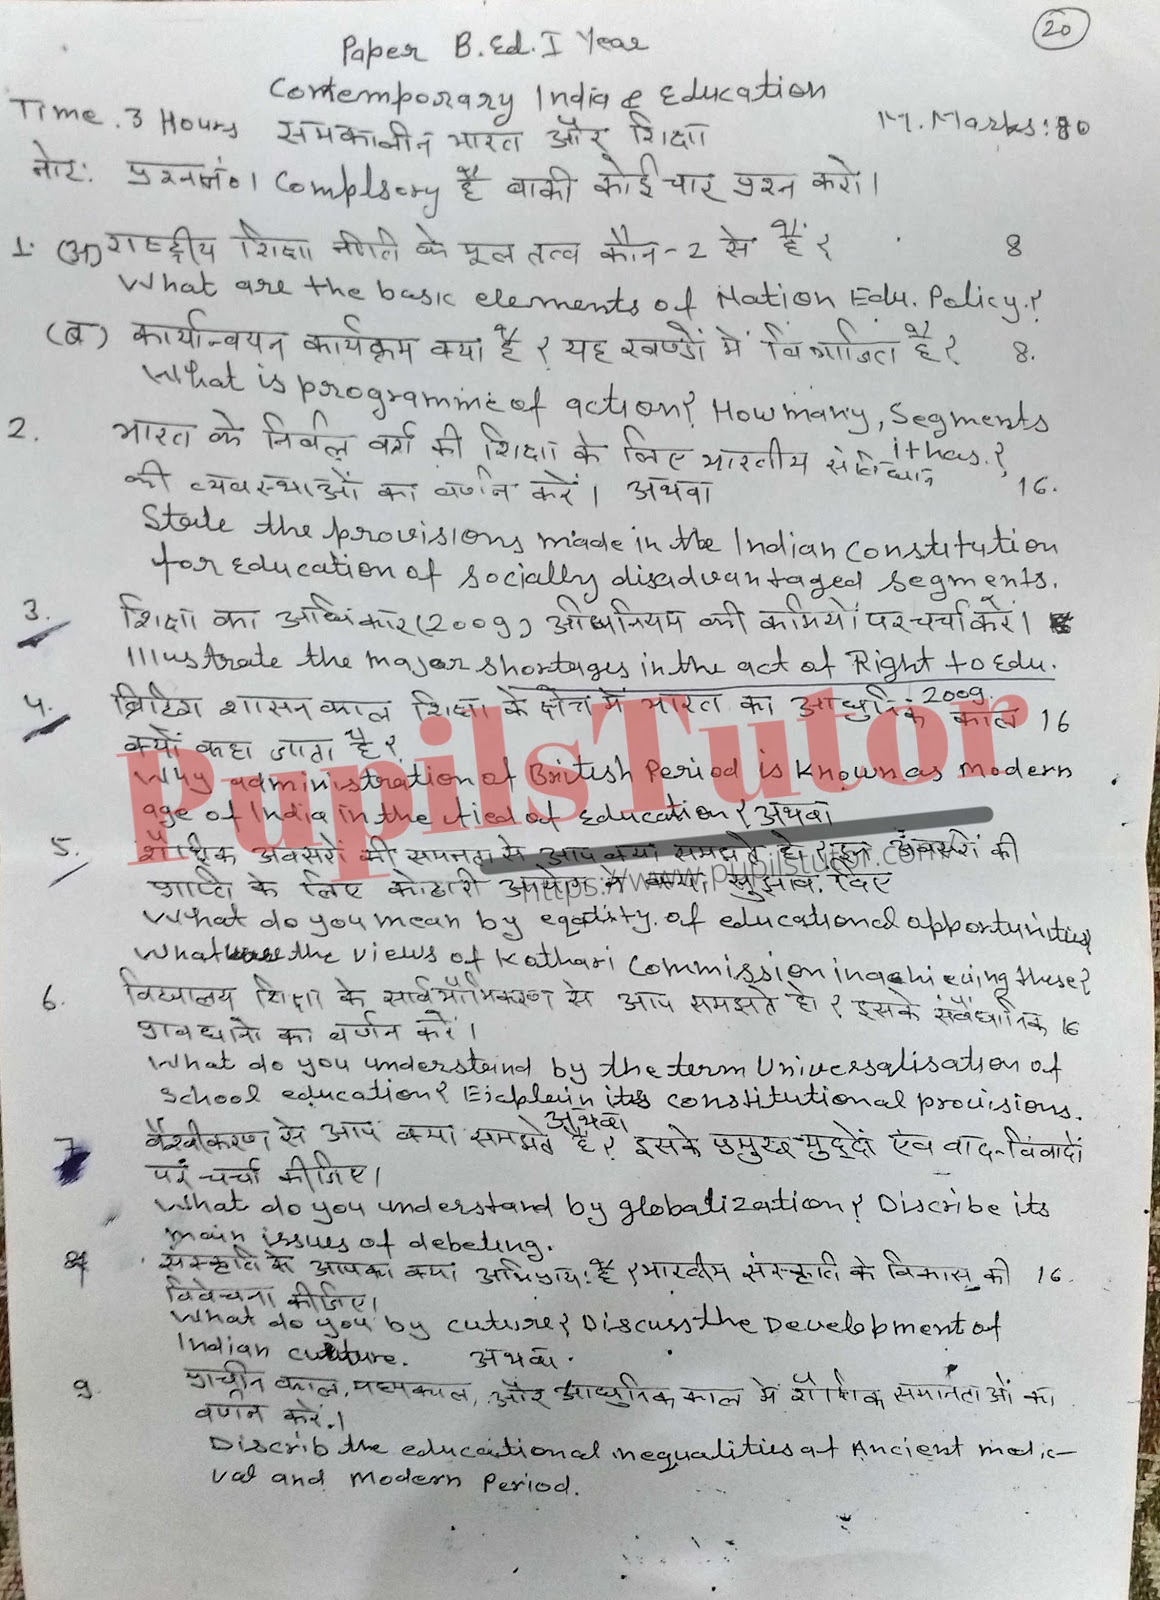 20
Paper B.Ed. I Year
Contemporary India & Education
Time. 3 Hours समकालीन भारत और शिक्षा M. Marks: 80
नोट: प्रश्न नं०1 Complsory है बाकी कोई चार प्रश्न करो।
1. (अ) राष्ट्रीय शिक्षा नीति के मूल तत्व कौन-2 से हैं? 8
What are the basic elements of Nation Edu. Policy.?
(ब) कार्यान्वयन कार्यक्रम क्या है? यह खण्डों में विभाजित है? 8.
What is programme of action? How many, Segments
it has.?
2. भारत के निर्बल वर्ग की शिक्षा के लिए भारतीय संविधान
की व्यवस्थाओं का वर्णन करें। अथवा 16.
State the provisions made in the Indian Constitution
for Education of socially disadvantaged segments.
3. शिक्षा का अधिकार (2009) अधिनियम की कमियों पर चर्चा करें।
Illustrate the major shortages in the act of Right to Edu.
2009.
4. ब्रिटिश शासन काल शिक्षा के क्षेत्र में भारत का आधुनिक काल 16
क्यों कहा जाता है?
Why administration of British Period is Known as modern
age of India in the field of Education? अथवा
5. शैक्षिक अवसरों की समानता से आप क्या समझते हो? इन अवसरों की
प्राप्ति के लिए कोठारी आयोग ने क्या सुझाव दिए
What do you mean by eqality of educational opportunities?
What are the views of Kothari Commission in achieving these?
6. विद्यालय शिक्षा के सार्वभौमिकरण से आप समझते हो? इसके संवैधानिक 16
प्रावधानो का वर्णन करें।
What do you understand by the term Universalisation of
School education? Explain its constitutional provisions.
अथवा
7. वैश्वीकरण से आप क्या समझते हैं? इसके प्रमुख मुद्दों एंव वाद-विवादों
पर चर्चा कीजिए।
What do you understand by globalization? Discribe its
main issues of debeting.
8. संस्कृति से आपका क्या अभिप्राय: है? भारतीय संस्कृति के विकास की 16.
विवेचना कीजिए।
What do you by cuture? Discuss the Development of
Indian culture. अथवा.
9. प्राचीन काल, मध्यकाल, और आधुनिक काल में शैक्षिक समानताओं का
वर्णन करें।
Discrib the educational inequalities at Ancient medie-
val and Modern Period.
PupilsTutor
https://www.pupilstutor.com